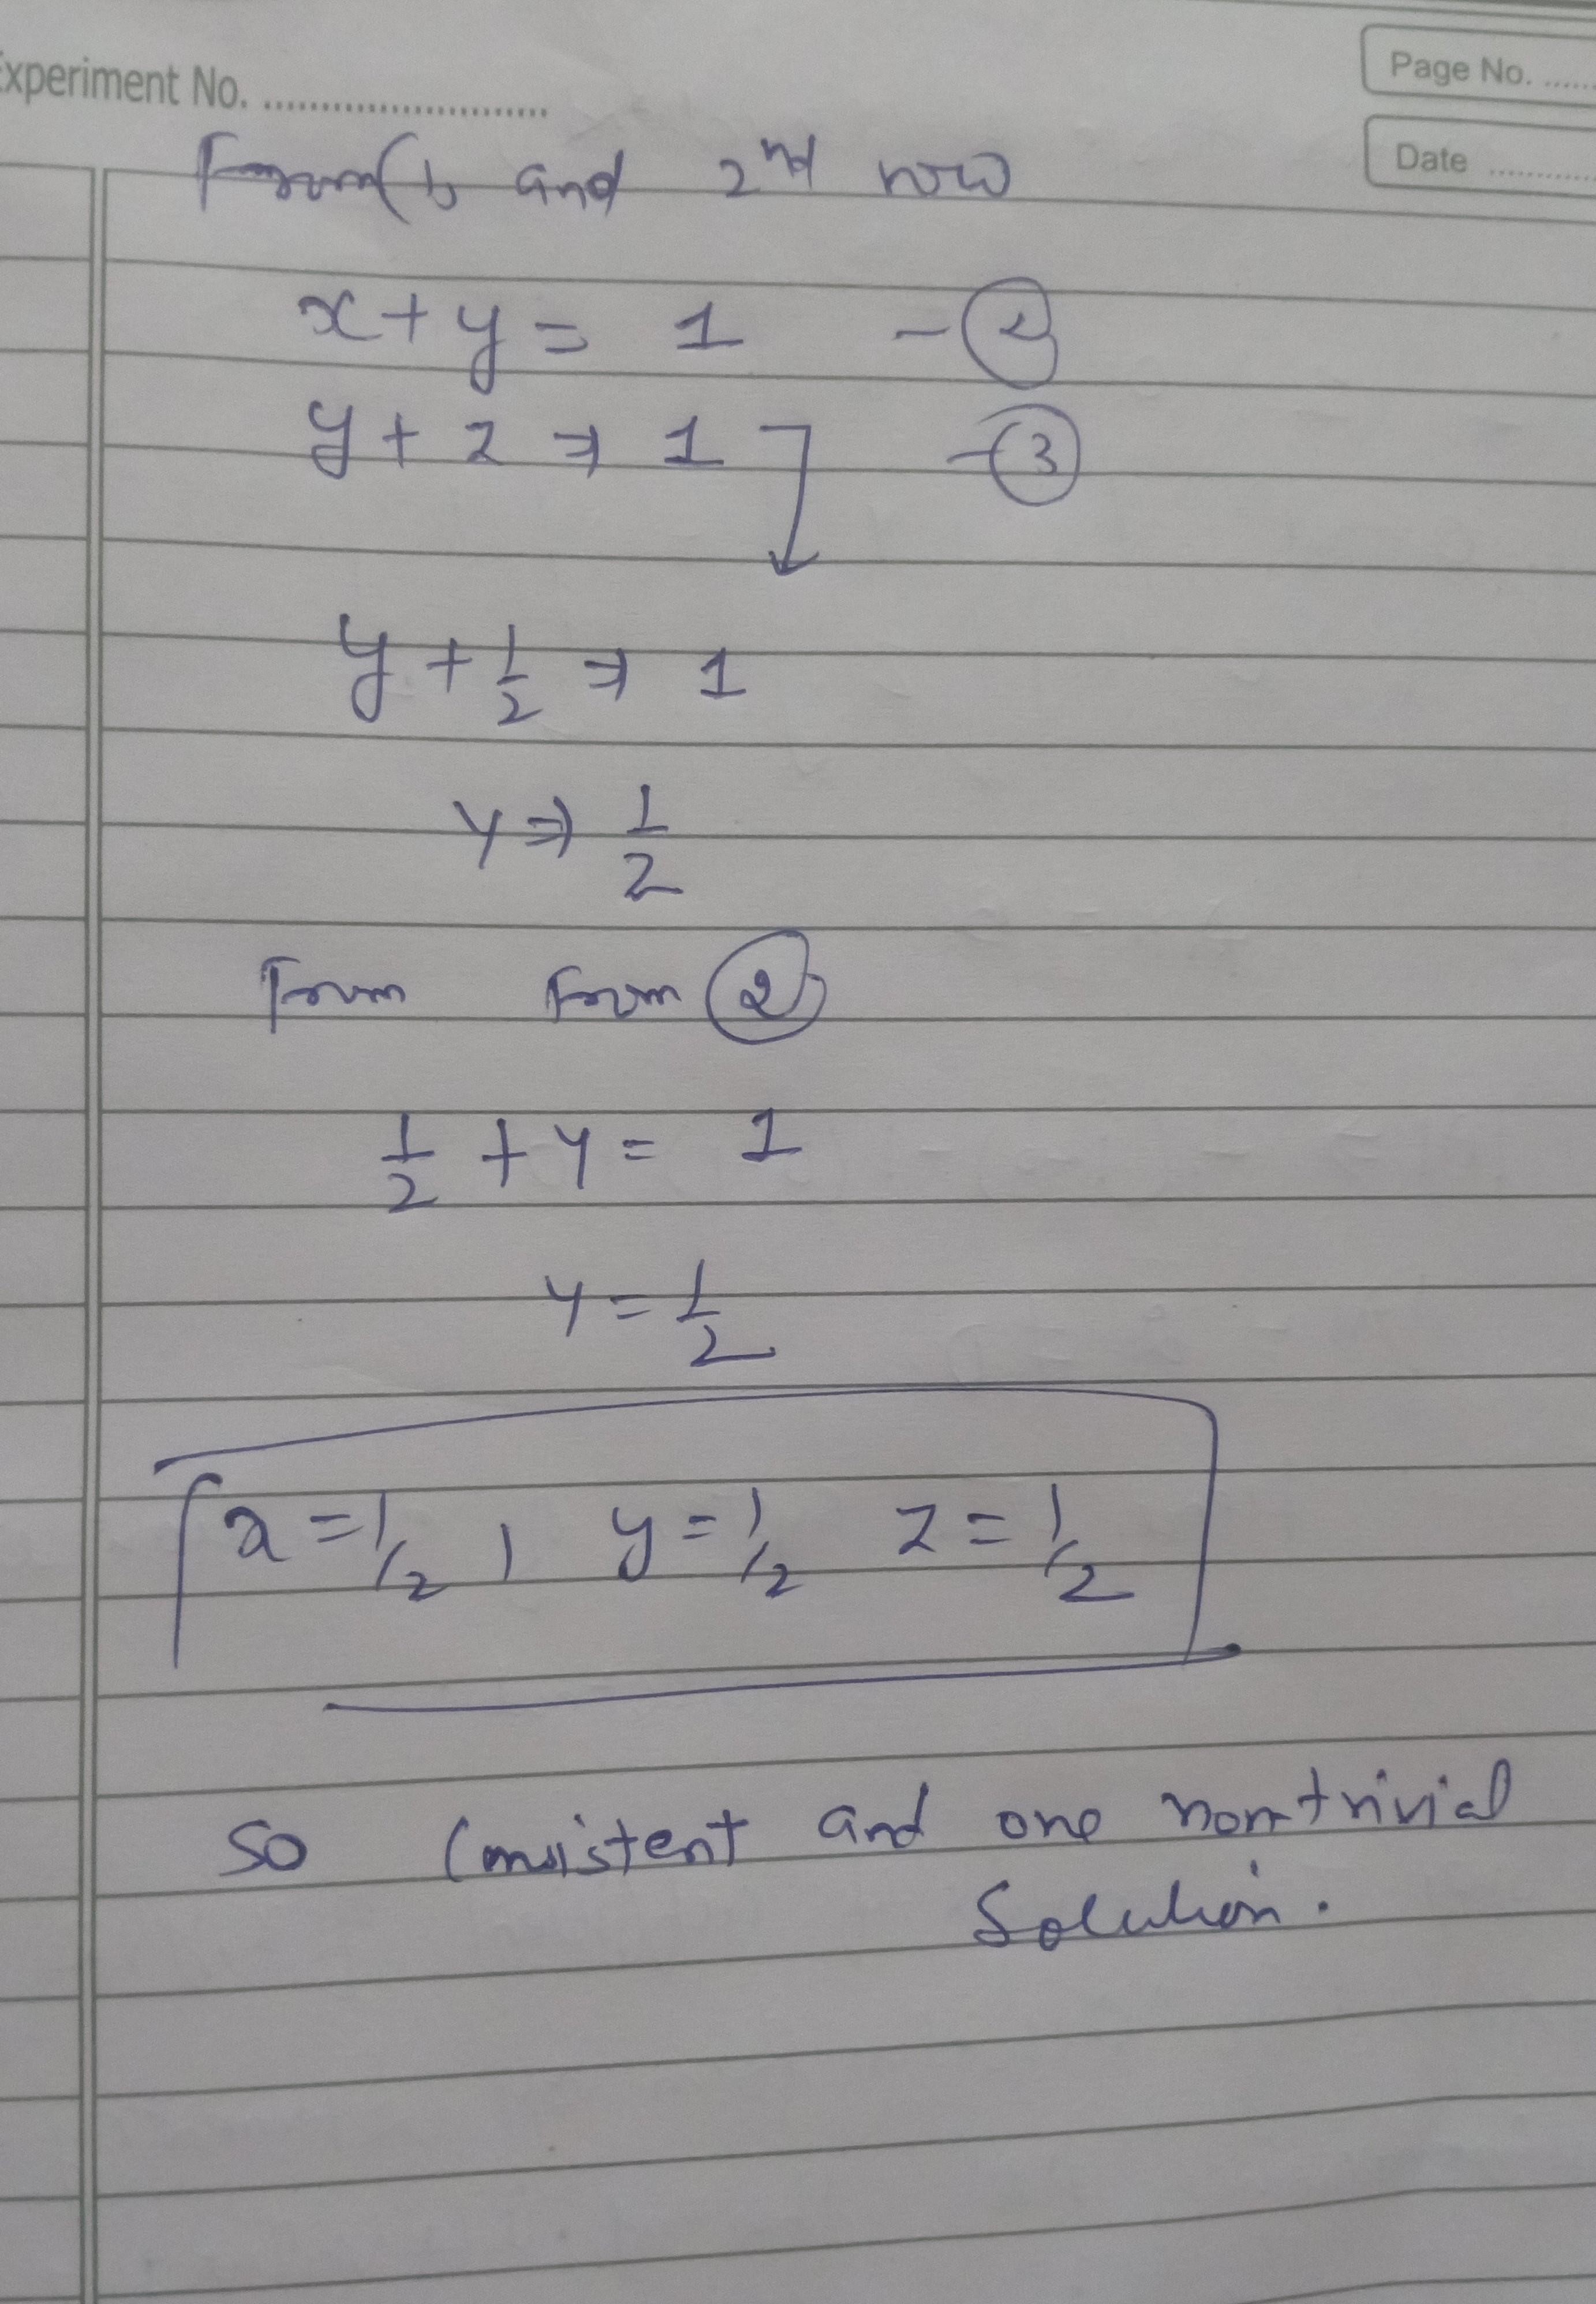 Experiment No. ........................
Page No. ......
Date ............
From (1, and 2nd row
x + y = 1 - ②
y + z ⇒ 1 - ③
y + 1/2 ⇒ 1
y ⇒ 1/2
From From ②
1/2 + y = 1
y = 1/2
x = 1/2 , y = 1/2 z = 1/2
So Consistent and one non-trivial
Solution.